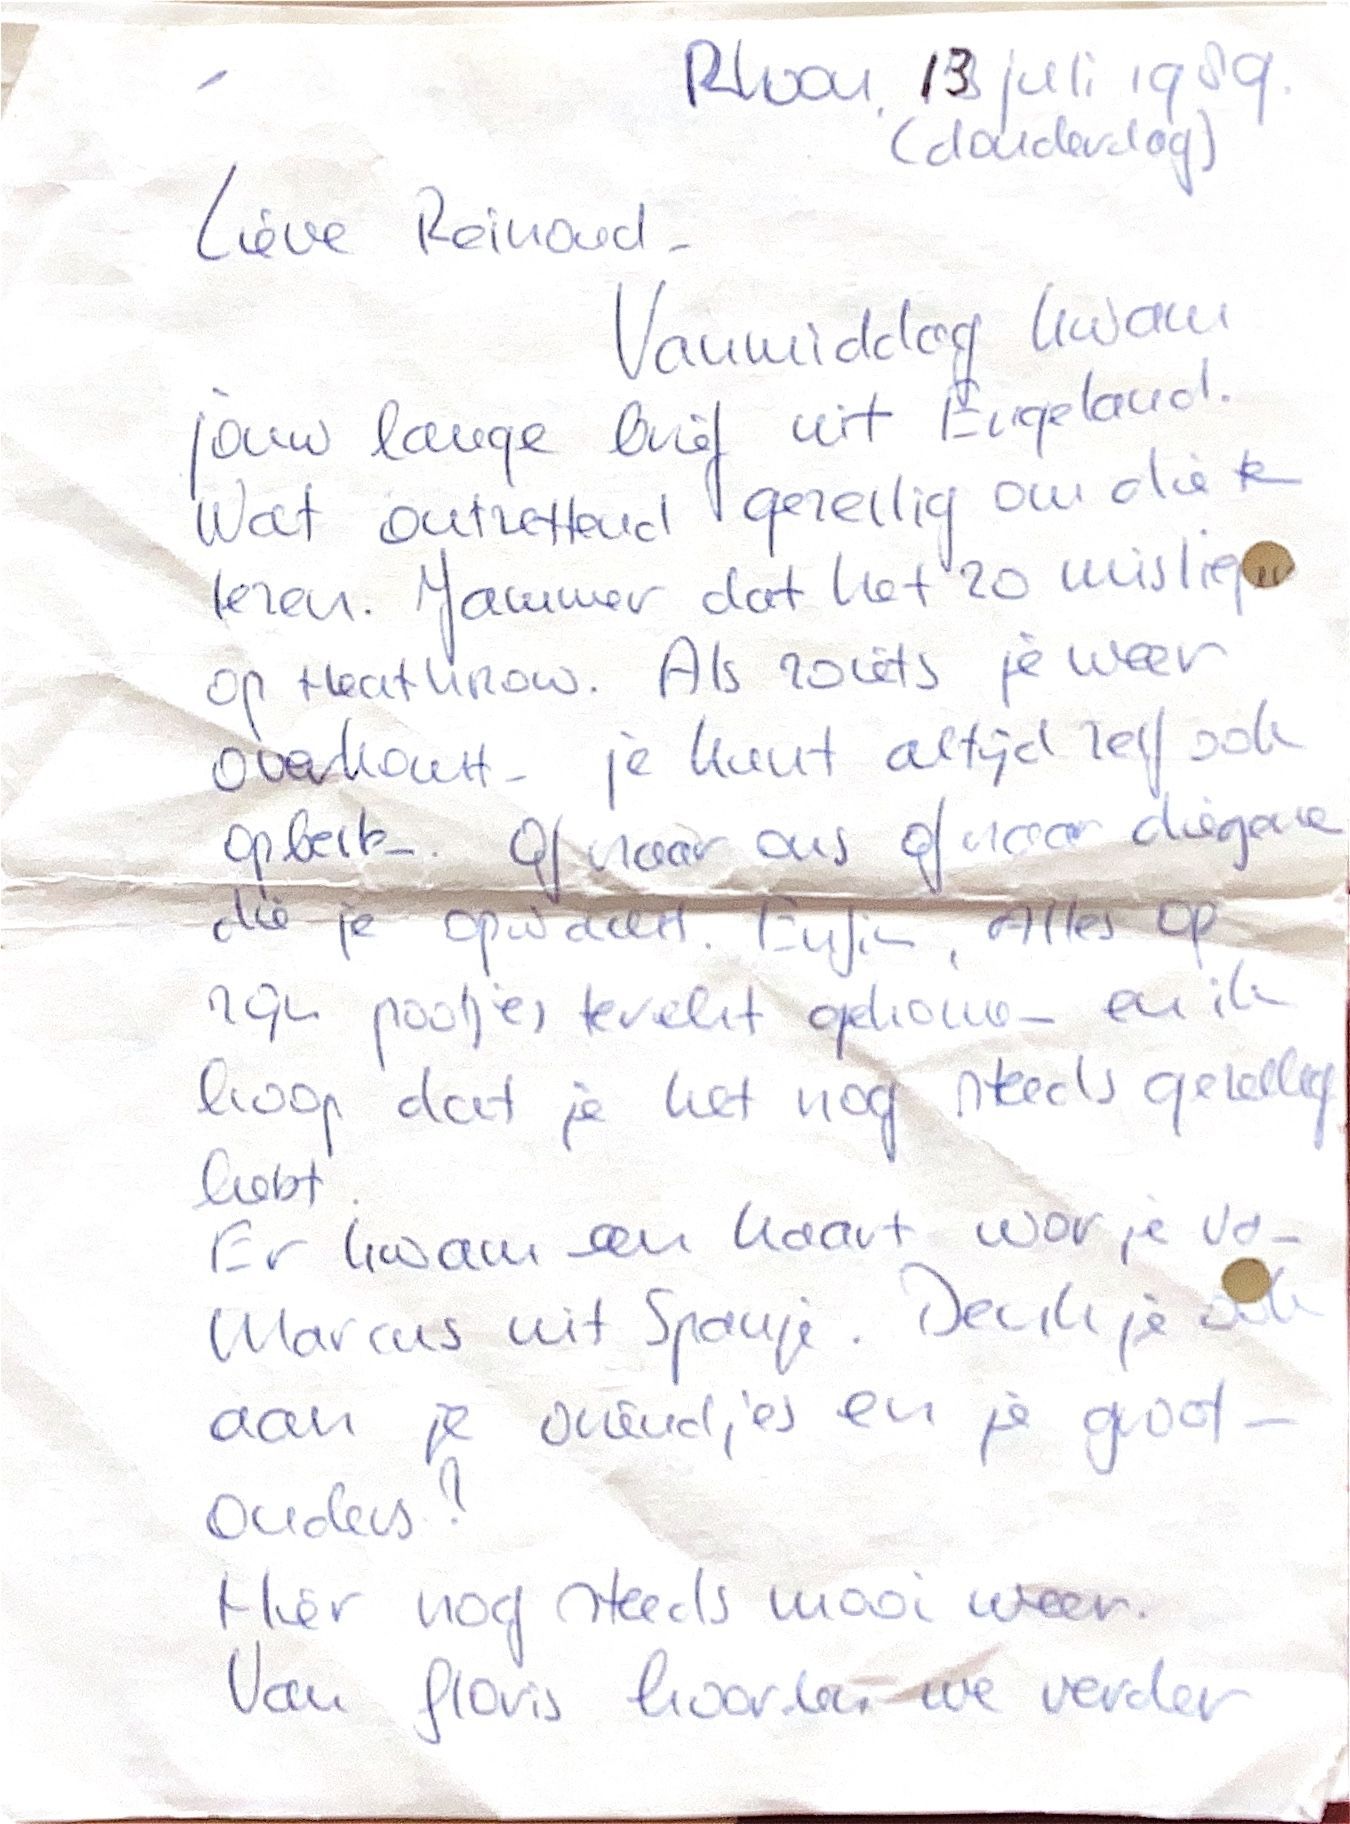 Rhoon, 13 juli 1989.
(donderdag)
Lieve Reinoud -
Vanmiddag kwam
jouw lange brief uit Engeland.
Wat ontzettend gezellig om die te
lezen. Jammer dat het zo misliep
op Heathrow. Als zoiets je weer
overkomt - je kunt altijd zelf ook
opbelle_. Of naar ons of naar diegene
die je opwacht. Enfin, Alles op
zijn pootjes terecht gekome_ en ik
hoop dat je het nog steeds gezellig
hebt.
Er kwam een kaart voor je va_
Marcus uit Spanje. Denk je ook
aan je vriendjes en je groot-
ouders?
Hier nog steeds mooi weer.
Van Floris hoorden we verder